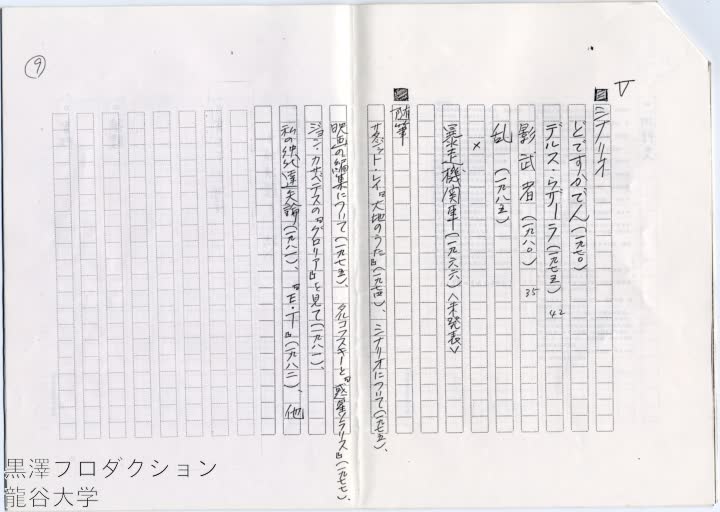 9
V
■シナリオ
どですかでん(一九七〇)
デルス・ウザーラ(一九七五)42
影武者(一九八〇)35
乱(一九八五)
×
暴走機関車(一九六六)〈未発表〉
■随筆
サタジット・レイ『大地のうた』(一九七四)、シナリオについて(一九七五)、
映画の編集について(一九七五)、タルコフスキーと『惑星ソラリス』(一九七七)、
ジョン・カサベテスの『グロリア』を見て(一九八一)、
私の仲代達矢論(一九八一)、『E・T』(一九八二)、他
黒澤フロダクション
龍谷大学